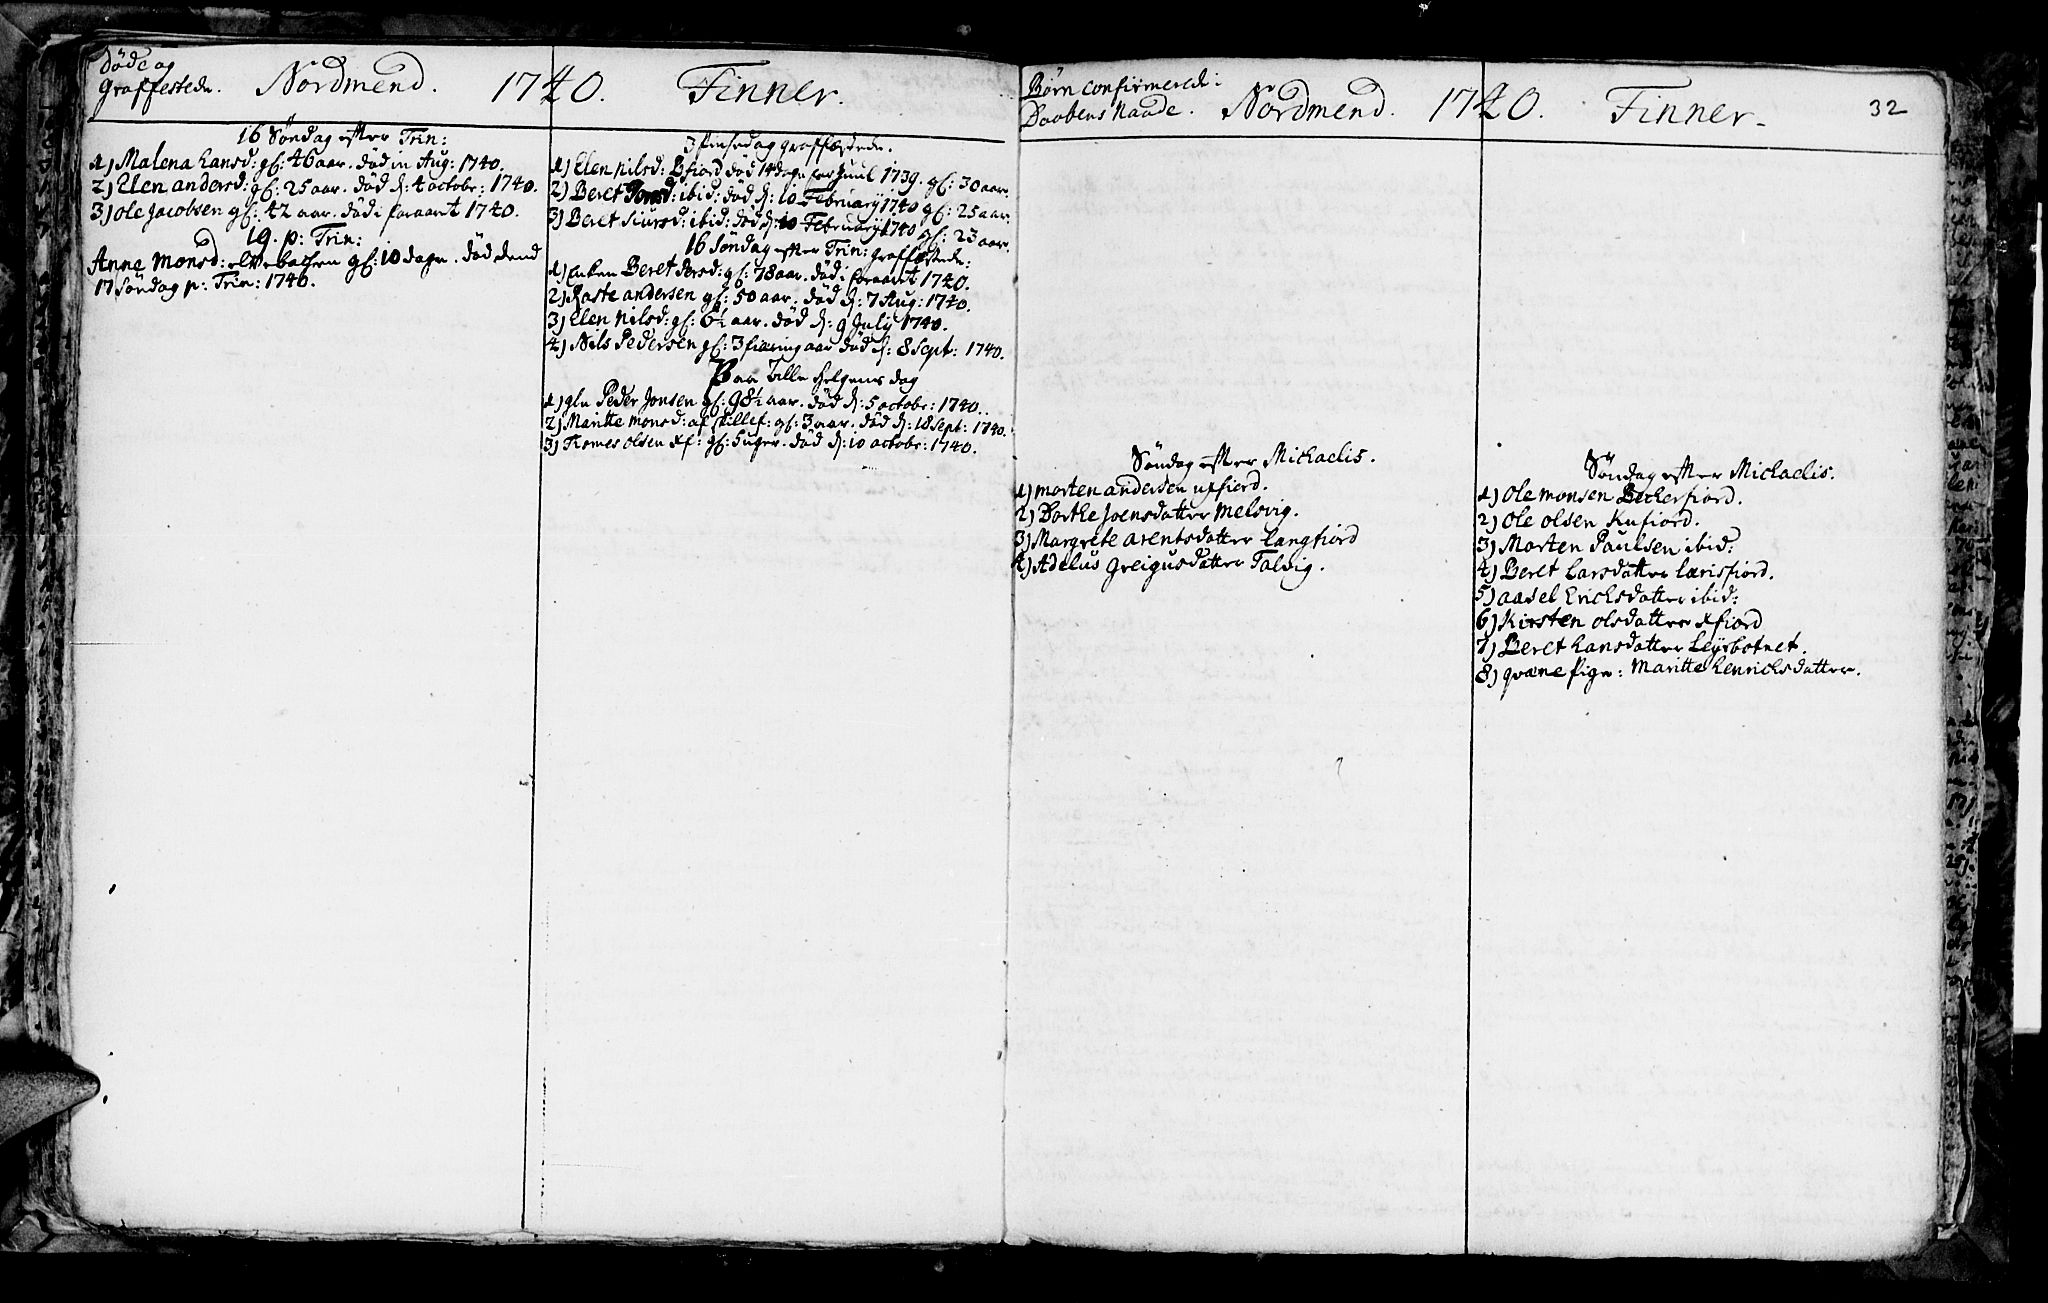 Døde og
Graffestede. Nordmend. 1740. Finner.
16 Søndag efter Trin:
1) Malena Hansd: gl: 46 aar. død in Aug: 1740.
2) Elen andersd: gl: 25 aar. død d: 4 octobr: 1740.
3) Ole Jacobsen gl: 42 aar. død i foraaret 1740.
19. p: Trin:
Anne Monsd: elvebachen gl: 10 dage. død dend
17 Søndag p: Trin: 1740.
3 Pinsedag graffestede.
1) Elen Nilsd: Bfiord død 14 dage før Juul 1739. gl: 30 aar.
2) Beret Jonsd: ibid: død d: 10 February 1740 gl: 25 aar.
3) Beret Siursd: ibid: død d: 10 February 1740 gl: 23 aar.
16 Søndag efter Trin: graffestede:
1) Enken Beret Persd: gl: 78 aar. død i foraaret 1740.
2) Raste andersen gl: 50 aar. død d: 7 Aug: 1740.
3) Elen Nilsd: gl: 6½ aar. død d: 9 July 1740.
4) Nils Pedersen gl: 3 fiæring aar død d: 8 Sept: 1740.
Paa Alle Helgens dag
1) gln Peder Jonsen gl: 98½ aar. død d: 5 octobr: 1740.
2) Maritte Monsd: af gl: 3 aar. død d: 18 Sept: 1740.
3) Tomes Olsen xf: gl: 5 uger. død d: 10 octobr: 1740.
Børn confirmerede i
Daabens Naade. Nordmend. 1740. Finner. 32
Søndag efter Michaelis.
1) Morten andersen ufiord.
2) Dorthe Joensdatter Melsvig.
3) Margrete arentsdatter Langfiord
4) Adelus Greigusdatter Talvig.
Søndag efter Michaelis.
1) Ole Monsen Beckerfiord.
2) Ole Olsen Kufiord.
3) Morten Paulsen ibid:
4) Beret Larsdatter Lærisfiord.
5) Aasel Ericksdatter ibid:
6) Kirsten Olsdatter xfiord
7) Beret Hansdatter Leysbotnet.
8) qvæne Pige: Maritte Henrichsdatter.